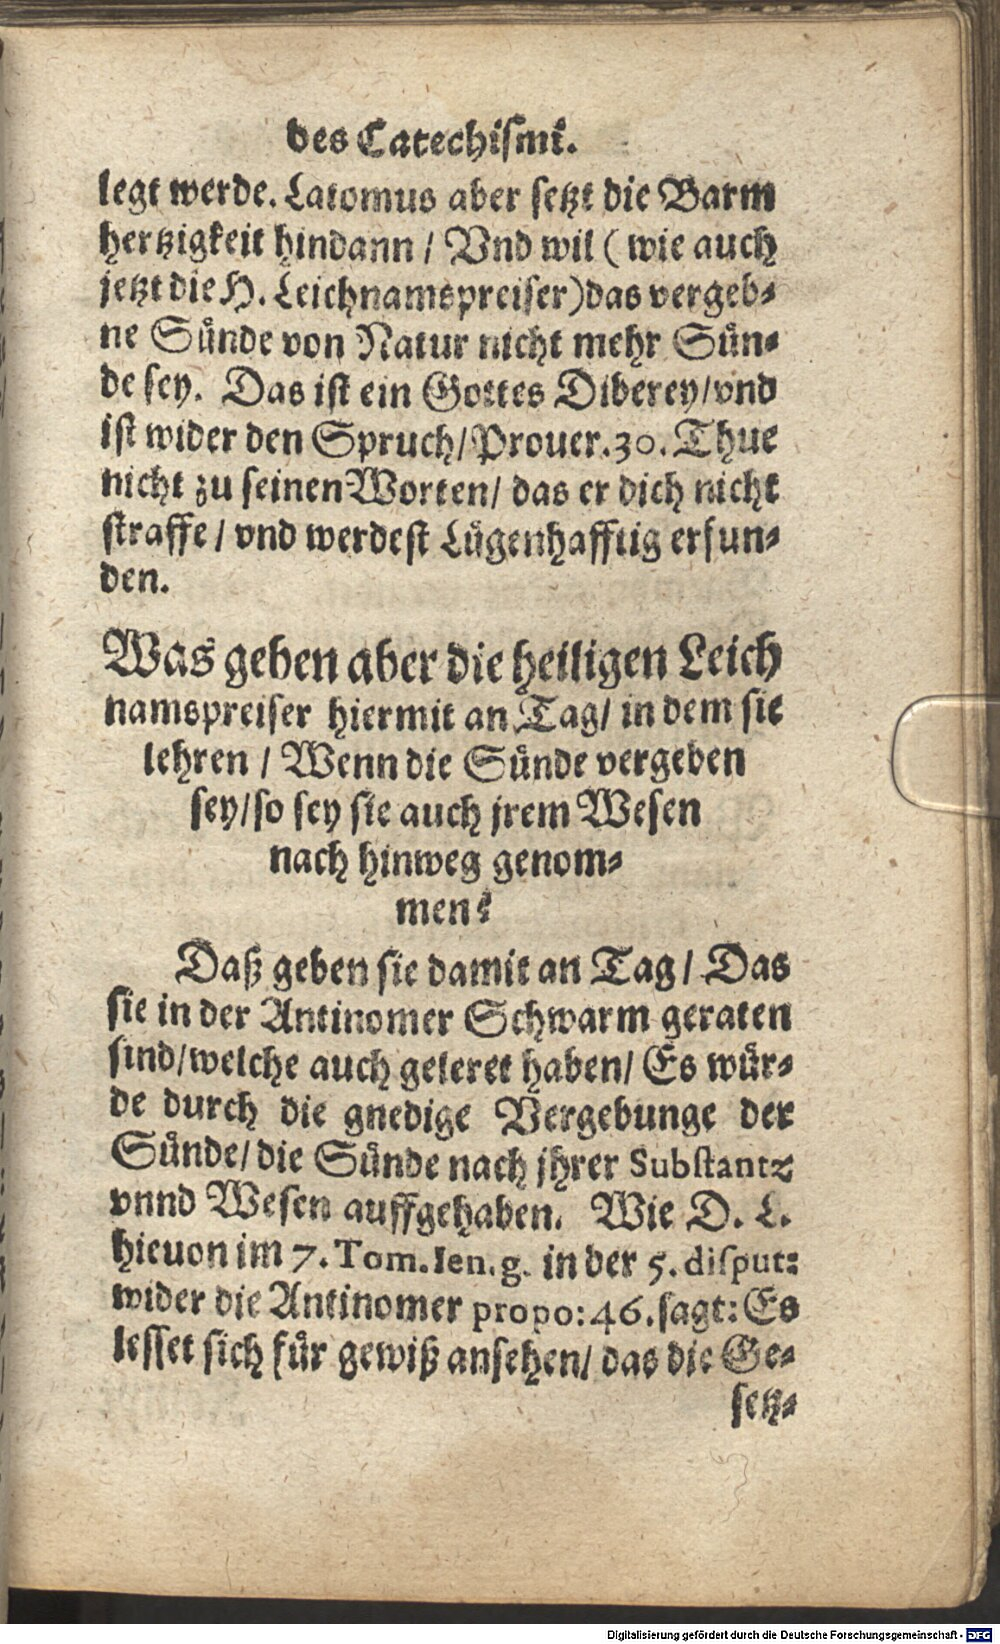 des Catechiſmi.
legt werde. Latomus aber ſetzt die Barm
hertzigkeit hindann / Vnd wil ( wie auch
jetzt die H. Leichnamspreiſer) das vergeb-
ne Sünde von Natur nicht mehr Sün-
de ſey. Das iſt ein Gottes Diberey / vnd
iſt wider den Spruch / Prouer. 30. Thue
nicht zu ſeinen Worten / das er dich nicht
ſtraffe / vnd werdeſt Lügenhafftig erfun-
den.
Was geben aber die heiligen Leich
namspreiſer hiermit an Tag / in dem ſie
lehren / Wenn die Sünde vergeben
ſey / ſo ſey ſie auch jrem Weſen
nach hinweg genom-
men?
Daß geben ſie damit an Tag / Das
ſie in der Antinomer Schwarm geraten
ſind / welche auch geleret haben / Es wür-
de durch die gnedige Vergebunge der
Sünde / die Sünde nach jhrer Subſtantz
vnnd Weſen auffgehaben. Wie D. L.
hieuon im 7. Tom. Ien. g. in der 5. diſput:
wider die Antinomer propo: 46. ſagt: Es
leſſet ſich für gewiß anſehen / das die Ge-
ſetz-
Digitalisierung gefördert durch die Deutsche Forschungsgemeinschaft - DFG